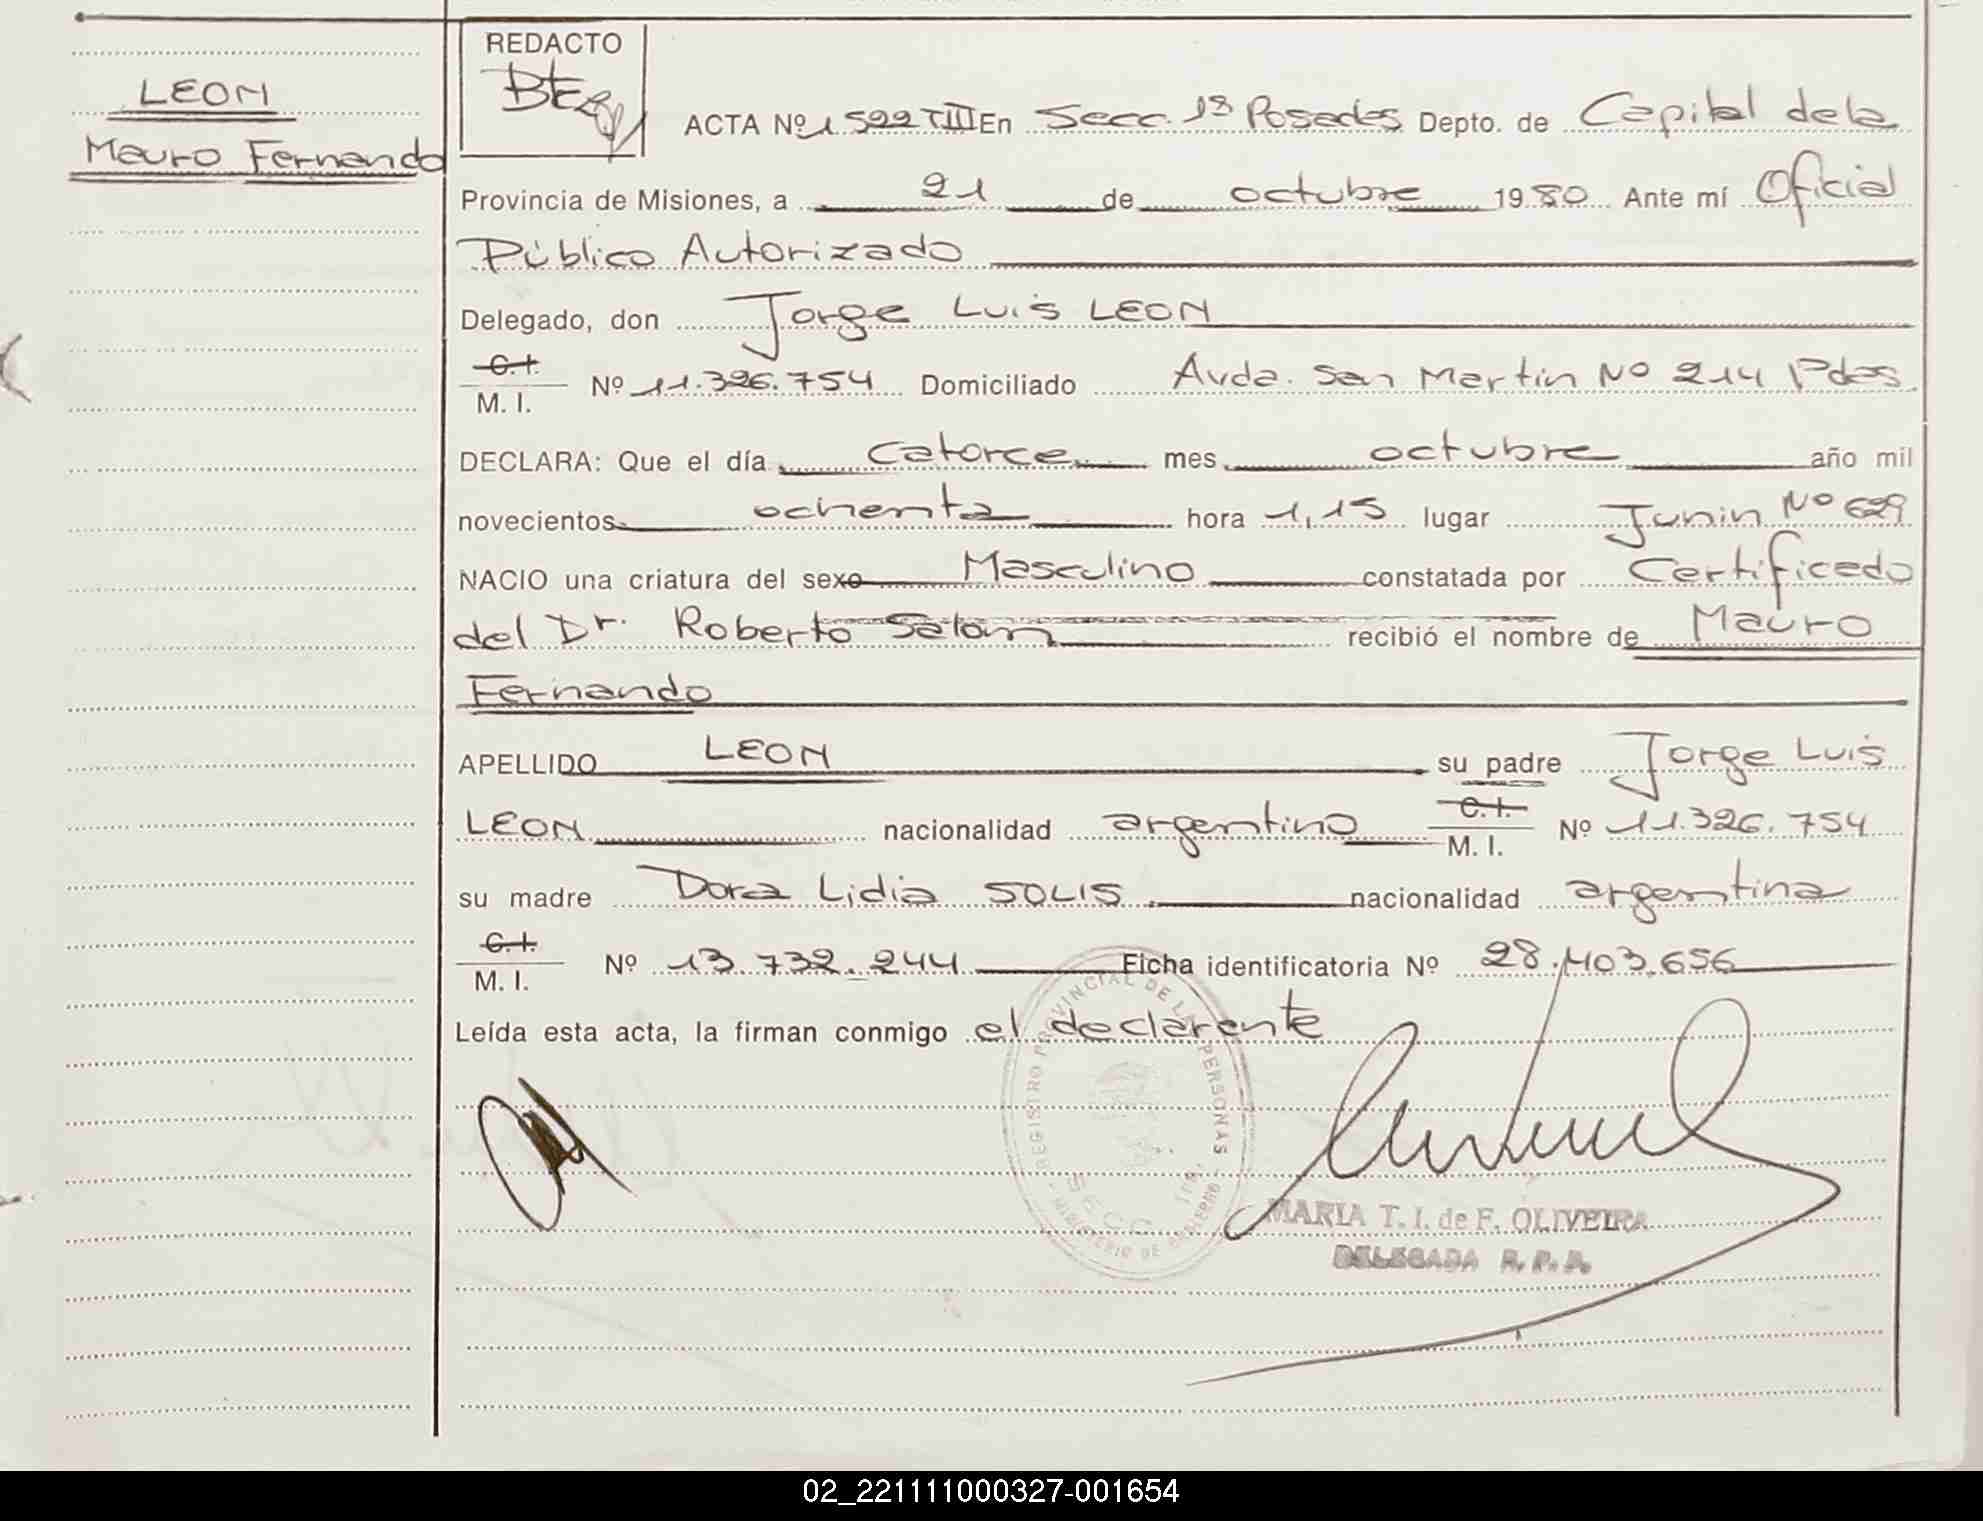 LEON
Mauro Fernando
REDACTO
ACTA Nº 1522 TIII En Secc. 1ª Posadas Depto. de Capital de la
Provincia de Misiones, a 21 de octubre 1980 Ante mí Oficial
Público Autorizado
Delegado, don Jorge Luis LEON
C.I.
M. I. Nº 11.326.754 Domiciliado Avda. San Martin Nº 214 Pdas
DECLARA: Que el día catorce mes octubre año mil
novecientos ochenta hora 1,15 lugar Junin Nº 629
NACIO una criatura del sexo Masculino constatada por Certificado
del Dr. Roberto recibió el nombre de Mauro
Fernando
APELLIDO LEON su padre Jorge Luis
LEON nacionalidad argentino C.I. M. I. Nº 11.326.754
su madre Dora Lidia SOLIS nacionalidad argentina
C.I.
M. I. Nº 13.732.244 Ficha identificatoria Nº 28.403.656
Leída esta acta, la firman conmigo el declarente
REGISTRO PROVINCIAL DE LAS PERSONAS
MINISTERIO DE GOBIERNO
SECC. 1ra.
MARIA T. I. de F. OLIVEIRA
DELEGADA R. P. P.
02_221111000327-001654